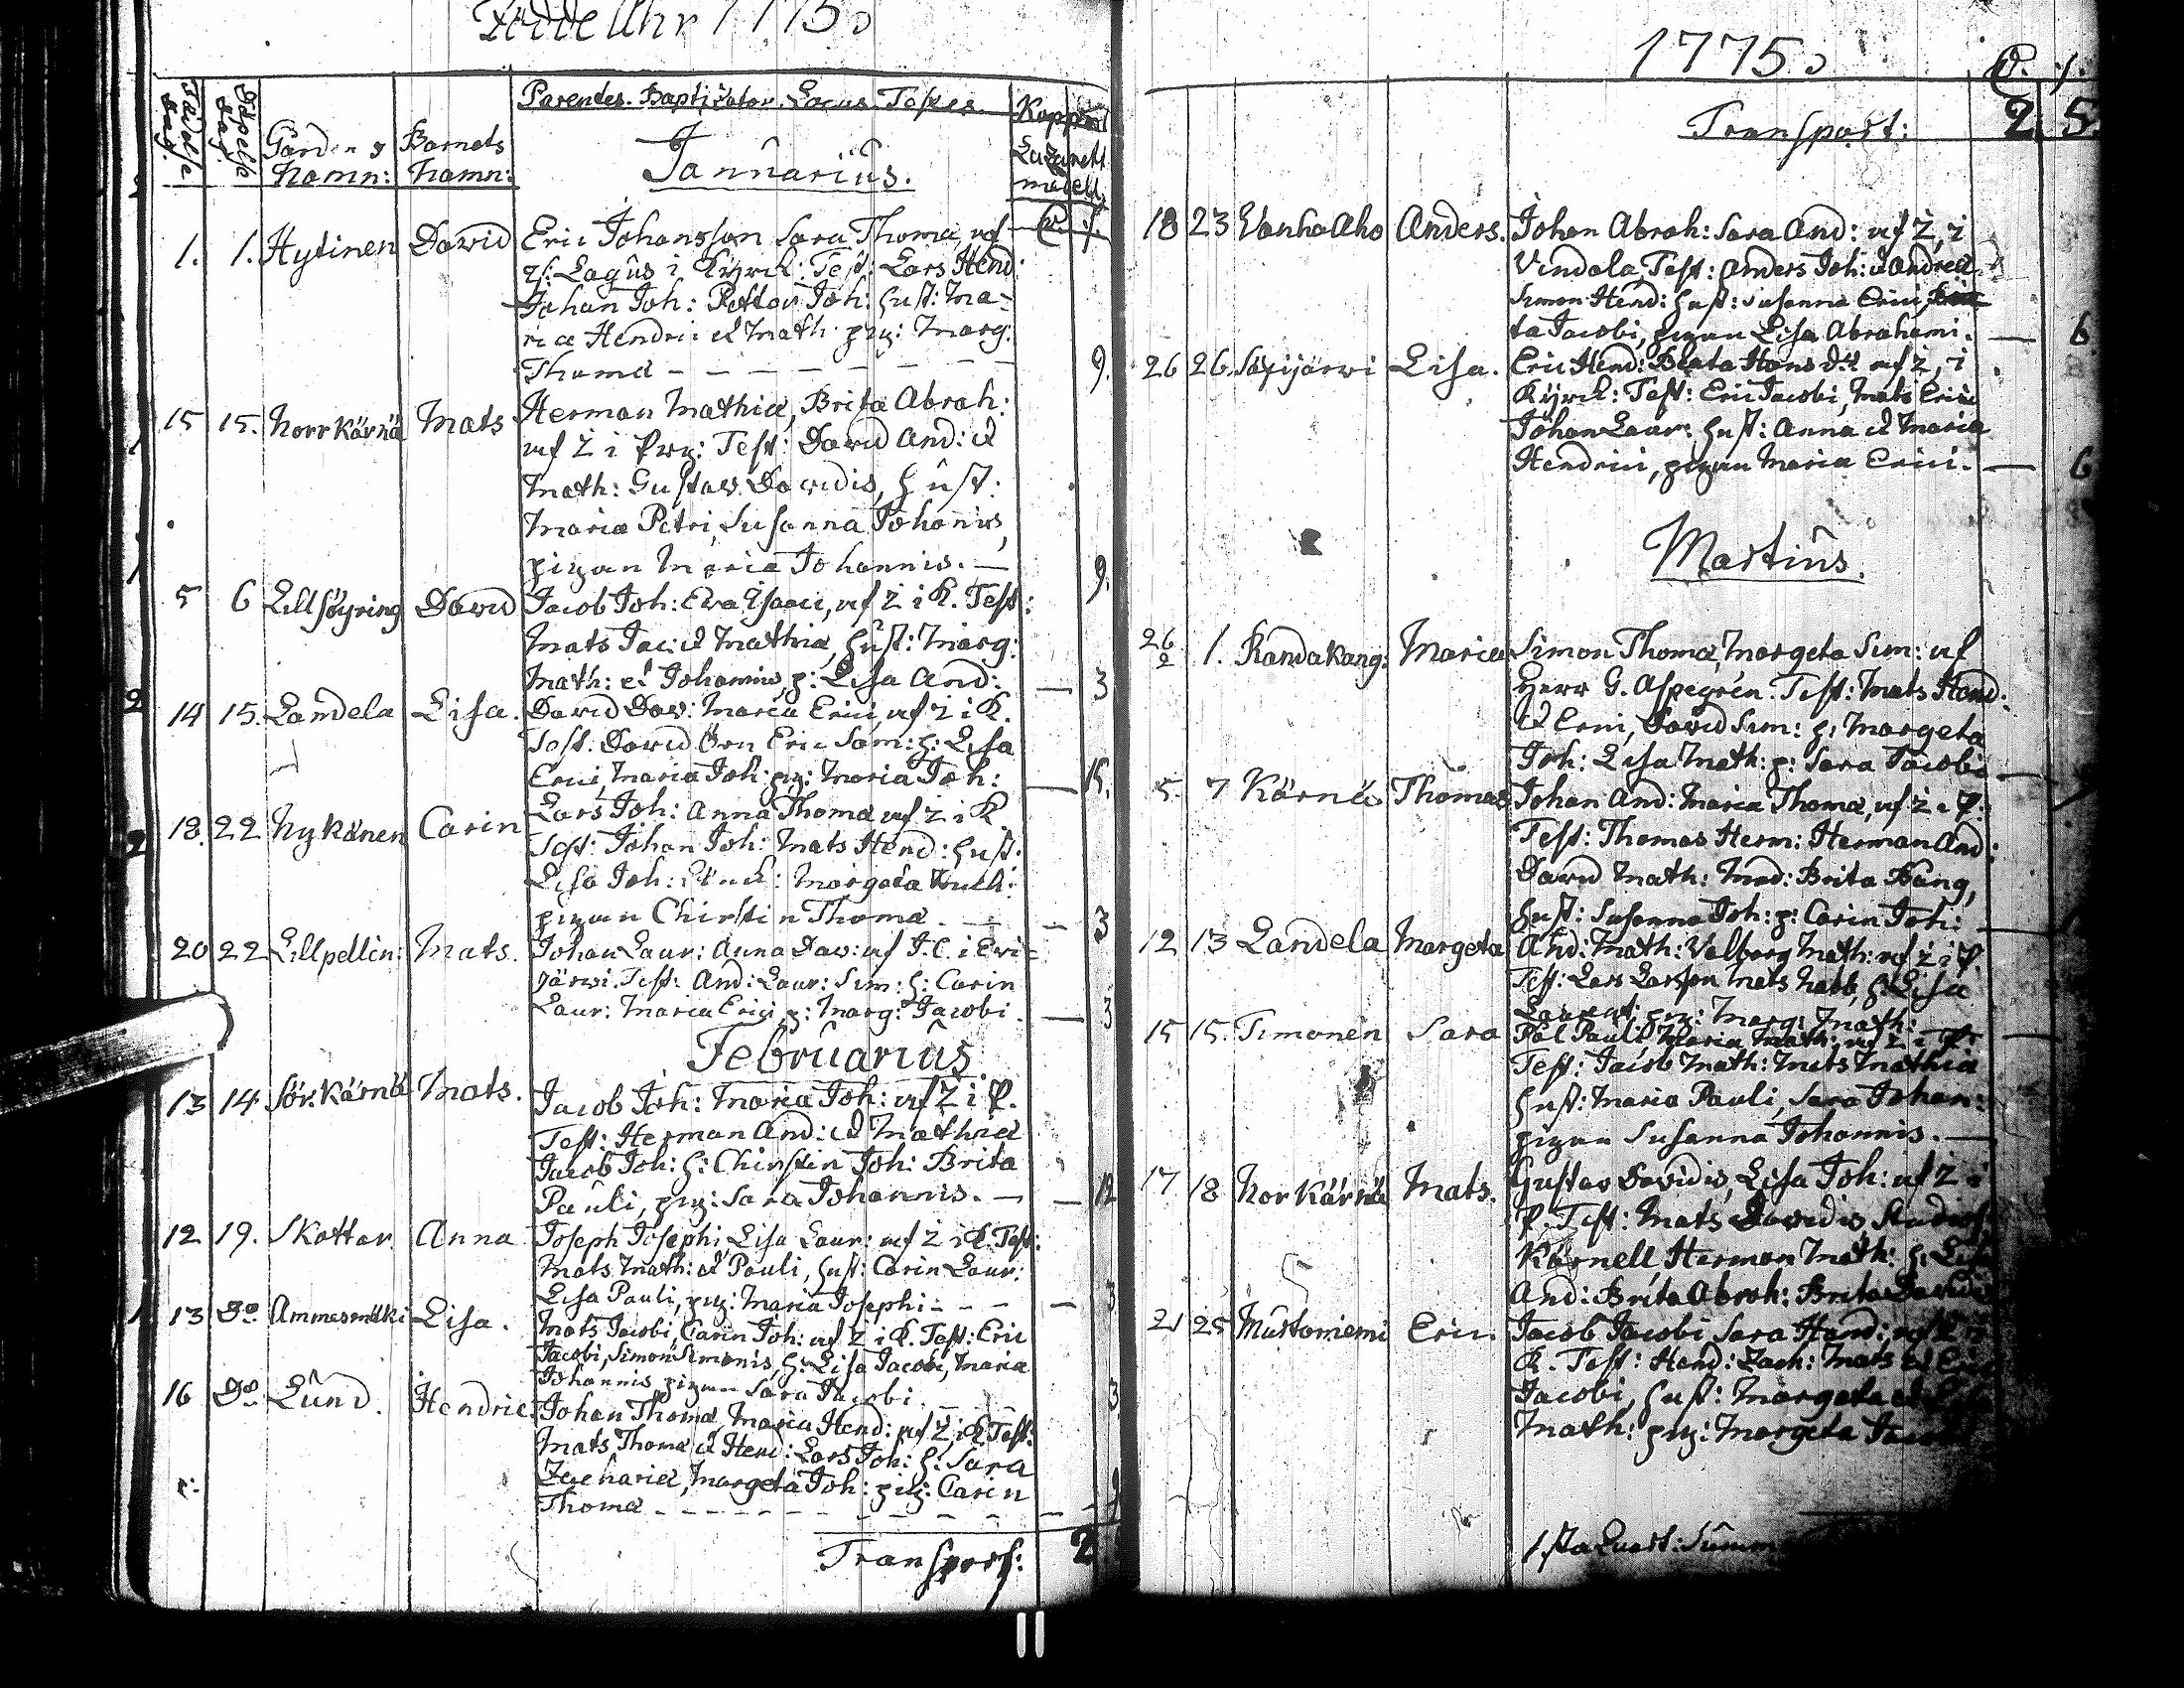 Födde Åhr 1775
Födelse dag:
Döpelse dag:
Gårdens namn:
Barnets namn:
Parentes. Baptizator. Locus. Testes.
Januarius.
1. 1. Hytinen David Eric Johansson Sara Thomæ, af
Lagus i Kyrck: Test: Lars Hend:
Johan Joh: Petter Joh: hust: Ma-
ria Hendrici et Math: pig: Marg:
Thomæ 9.
15 15. Norr Kärnä Mats Herman Mathiæ, Brita Abrah:
af Z i Prg: Test: David And: et
Math: Gustav Davidis, Hust:
Maria Petri, Susanna Johannis,
pigan Maria Johannis. 9.
5 6 David Jacob Joh: Eva Isaaci, af Z i K. Test:
Mats Jac: et Mathiæ, hust: Marg:
Math: et Johannis, p: Lisa And: 3
14 15. Landela Lisa. David Dav: Maria Erici, af Z i K.
Test: David Eric Sam: h: Lisa
Erici, Maria Joh: pig: Maria Joh: 15.
18. 22 Nykänen Carin Lars Joh: Anna Thomæ af Z i K
Test: Johan Joh: Mats Hend: hust:
Lisa Joh: Margeta
pigan Chirstin Thomæ. 3
20 22 Lillpellin: Mats. Johan Laur: Anna Dav: af J.C. i Evi=
järvi. Test: And: Laur: Sim: h: Carin
Laur: Maria Erici, p: Marg: Jacobi. 3
Februarius
13 14 Sör: Kärnä Mats. Jacob Joh: Maria Joh: af Z i P.
Test: Herman And: et Mathiæ
Jacob Joh: h: Chirstin Joh: Brita
Pauli, pig: Sara Johannis. 12
12 19. Skattar Anna Joseph Josephi Lisa Laur: af Z i K. Test:
Mats Math: et Pauli, hust: Carin Laur:
Lisa Pauli, pig: Maria Josephi 3
13 Do Ammesmäki Lisa. Mats Jacobi, Carin Joh: af Z i K. Test: Eric
Jacobi, Simon Simonis, h: Lisa Jacobi, Maria
Johannis pigan Sara Jacobi. 3
16 Do Lund. Hendric Johan Thomæ, Maria Hend: af Z i K Test:
Mats Thomæ et Hend: Lars Joh: h: Sara
Zachariæ, Margeta Joh: pig: Carin
Thomæ 9
Transport: 2
1775
Transport: 2. 5.
18 23 Vanha Aho Anders. Johan Abrah: Sara And: af Z, i
Vindala, Test: Anders Joh: et Andreæ
Simon Hend: hust: Susanna Erici,
ta Jacobi, pigan Lisa Abrahami. 6
26 26. Lisa. Eric Hend: Beata Hans dr af Z, i
Kyrck: Test: Eric Jacobi, Mats Erici
Johan Laur: hust: Anna et Maria
Hendrici, pigan Maria Erici. 6
Martius.
26/2 1. Kandakang: Maria Simon Thomæ, Margeta Sim: af
Herr G. Aspegrén. Test: Mats Hend:
et Erici, David Sim: h: Margeta
Joh: Lisa Math: p: Sara Jacobi
5. 7 Kärnä Thomas Johan And: Maria Thomæ, af Z i P.
Test: Thomas Herm: Herman And:
David Math: Mad: Brita Bäng,
hust: Susanna Joh: p: Carin Joh:
12 13 Landela Margeta And: Math: Valborg Math: af Z i P.
Test: Lars Larsson Mats h: Lisa
pig: Marg: Math:
15 15. Timonen Sara Pål Pauli Maria Math: af Z i P
Test: Jacob Math: Mats Mathiæ
hust: Maria Pauli, Sara Johan:
pigan Susanna Johannis.
17 18 Nor Kärnä Mats. Gustav Davidis, Lisa Joh: af Z i
P. Test: Mats Davidis
Kärnell Herman Math: h: Lisa
And: Brita Abrah: Brita Davidis
21 25 Mustaniemi Eric. Jacob Jacobi Sara Hend: af Z
K. Test: Hend: Zach: Mats et Eric
Jacobi, hust: Margeta et
Math: pig: Margeta
1.sta Quart: Summ